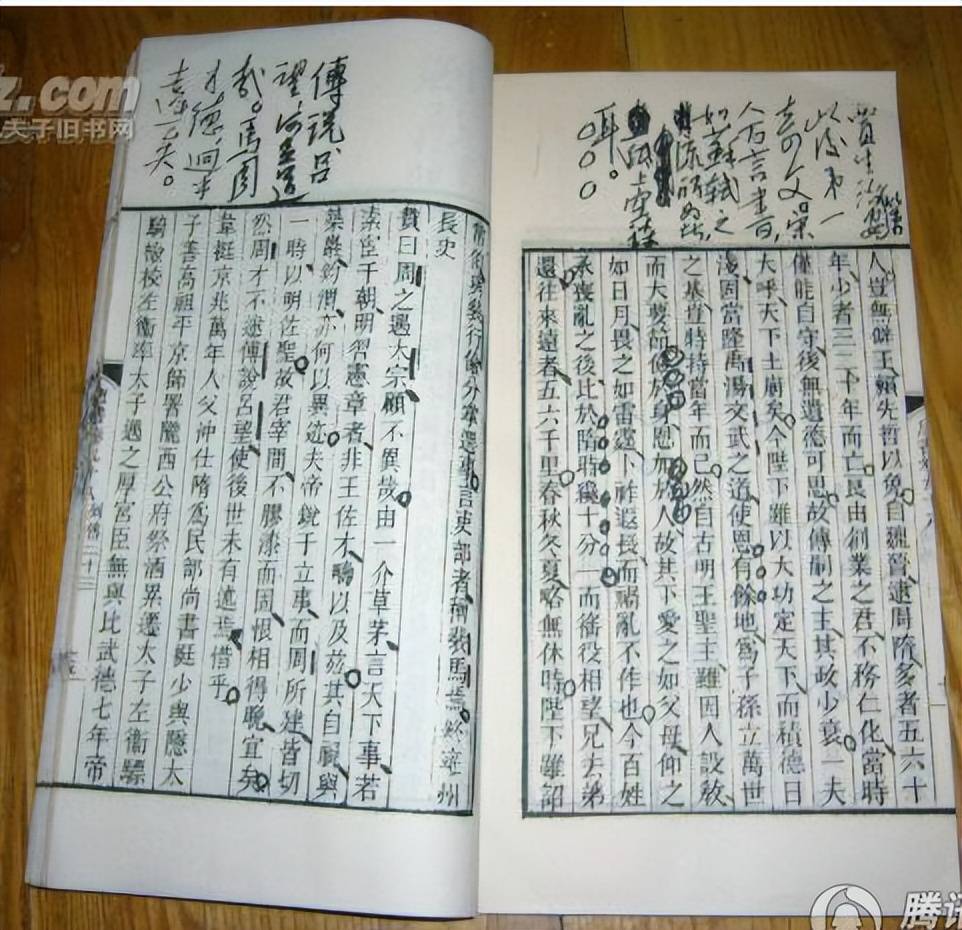 賈生治安策
以後第一
奇文。宋
人万言書,
如蘇軾之
流所為
紙上空談
耳。
人豈無僻王賴先哲以免自魏晉逮周隋多者五六十
年少者三二十年而亡良由創業之君不務仁化當時
僅能自守後無遺德可思故傳嗣之主其政少衰一夫
大呼天下土崩矣今陛下雖以大功定天下而積德日
淺固當隆禹湯文武之道使恩有餘地爲子孫立萬世
之基豈特持當年而已然自古明王聖主雖因人設教
而大要節儉於身恩加於人故其下愛之如父母仰之
如日月畏之如雷霆卜祚遐長而禍亂不作也今百姓
承喪亂之後比於隋時纔十分一而徭役相望兄去弟
還往來遠者五六千里春秋冬夏略無休時陛下雖詔
傅說呂
望何足道
哉。馬周
才德,迥乎
遠矣。
長史
贊曰周之遇太宗顧不異哉由一介草茅言天下事若
素宦于朝明習憲章者非王佐才疇以及茲其自視與
築巖釣渭亦何以異迹夫帝銳于立事而周所建皆切
一時以明佐聖故君宰間不膠漆而固恨相得晚宜矣
然周才不逮傅說呂望使後世未有述焉惜乎
韋挺京兆萬年人父沖仕隋爲民部尚書挺少與隱太
子善高祖平京師署隴西公府祭酒累遷太子左衞驃
騎檢校左衞率太子遇之厚宮臣無與比武德七年帝
z.com
天子旧书网
腾讯